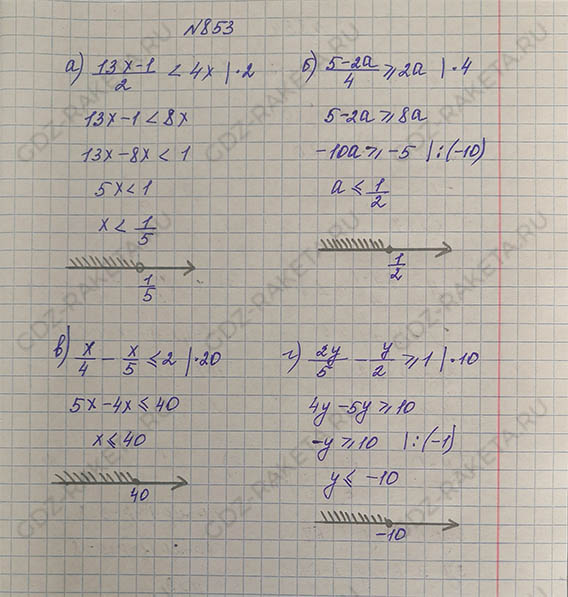 №853
а) (13x-1)/2 < 4x |·2
13x-1 < 8x
13x-8x < 1
5x < 1
x < 1/5
1/5
б) (5-2a)/4 ⩾ 2a |·4
5-2a ⩾ 8a
-10a ⩾ -5 |:(-10)
a ⩽ 1/2
1/2
в) x/4 - x/5 ⩽ 2 |·20
5x-4x ⩽ 40
x ⩽ 40
40
г) 2y/5 - y/2 ⩾ 1 |·10
4y-5y ⩾ 10
-y ⩾ 10 |:(-1)
y ⩽ -10
-10
GDZ-RAKETA.RU